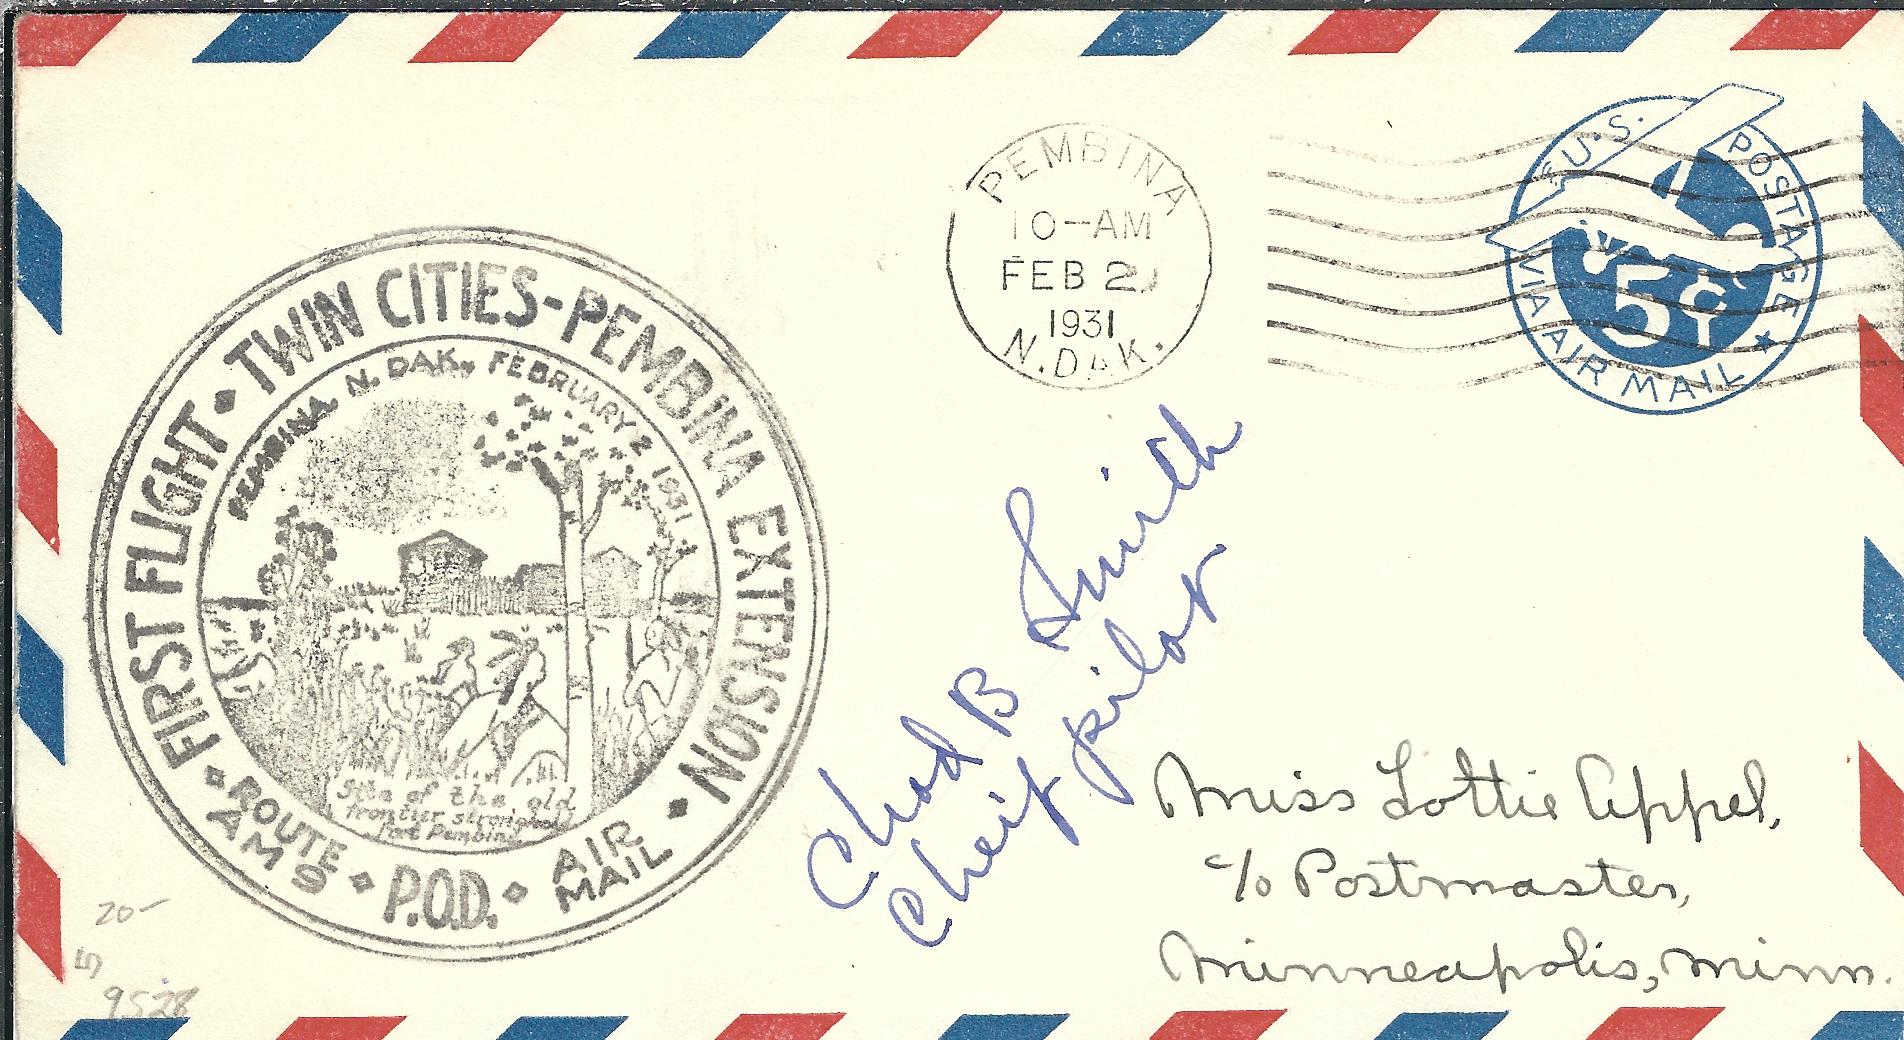 U.S. POSTAGE
5¢
VIA AIR MAIL
PEMBINA
10-AM
FEB 2
1931
N.DAK.
FIRST FLIGHT TWIN CITIES-PEMBINA EXTENSION
PEMBINA, N. DAK., FEBRUARY 2 1931
Site of the old
frontier stronghold
Fort Pembina
ROUTE
AM 9
P.O.D.
AIR
MAIL
Chad B Smith
Cheif pilot
Miss Lottie Appel,
c/o Postmaster,
Minneapolis, Minn.
20-
9528